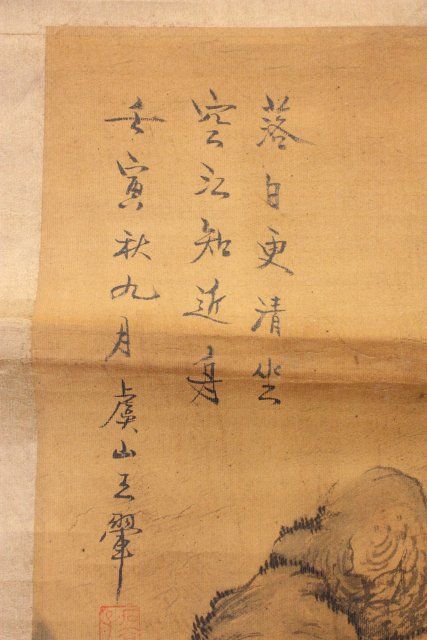 落日更清坐
空江知近舟
壬寅秋九月虞山王翬